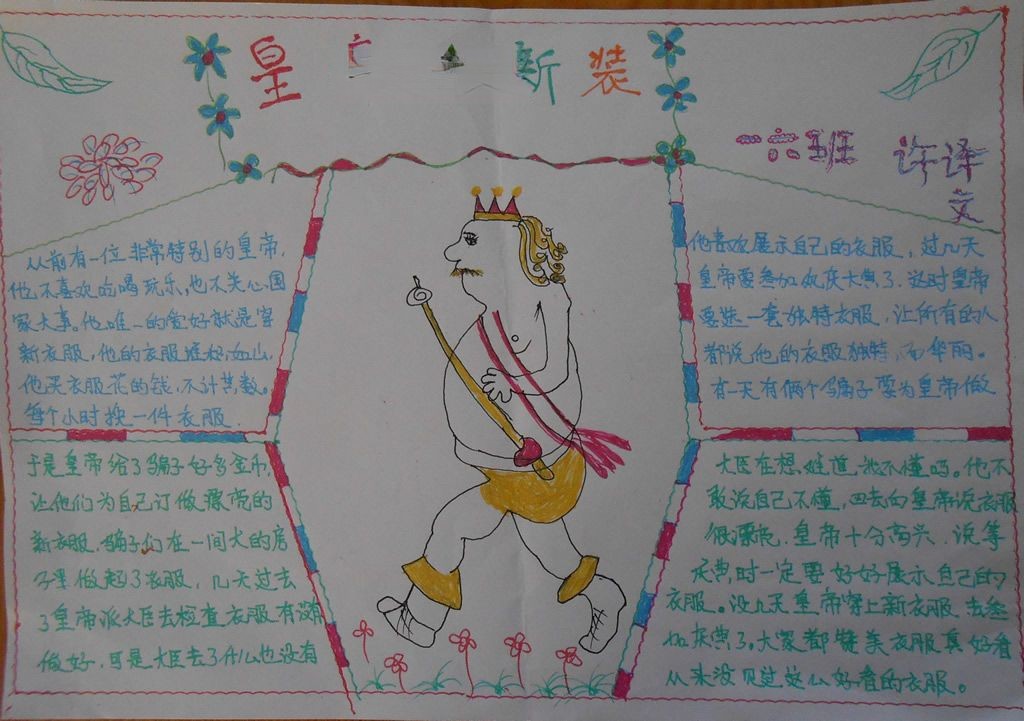 皇 新装
一六班 许译文
从前有一位非常特别的皇帝，
他不喜欢吃喝玩乐，也不关心国
家大事。他唯一的爱好就是穿
新衣服，他的衣服堆积如山，
他买衣服花的钱，不计其数。
每个小时换一件衣服。
他喜欢展示自己的衣服，过几天
皇帝要参加欢庆大典了，这时皇帝
要选一套独特衣服，让所有的人
都说他的衣服独特，而华丽。
有一天有俩个骗子要为皇帝做
于是皇帝给了骗子好多金币，
让他们为自己订做漂亮的
新衣服，骗子们在一间大的房
子里做起了衣服，几天过去
了皇帝派大臣去检查衣服有没有
做好，可是大臣去了什么也没有
大臣在想，难道我不懂吗。他不
敢说自己不懂，回去向皇帝说衣服
很漂亮，皇帝十分高兴，说等
庆典时一定要好好展示自己的
衣服。没几天皇帝穿上新衣服去参
加庆典了。大家都赞美衣服真好看
从来没见过这么好看的衣服。